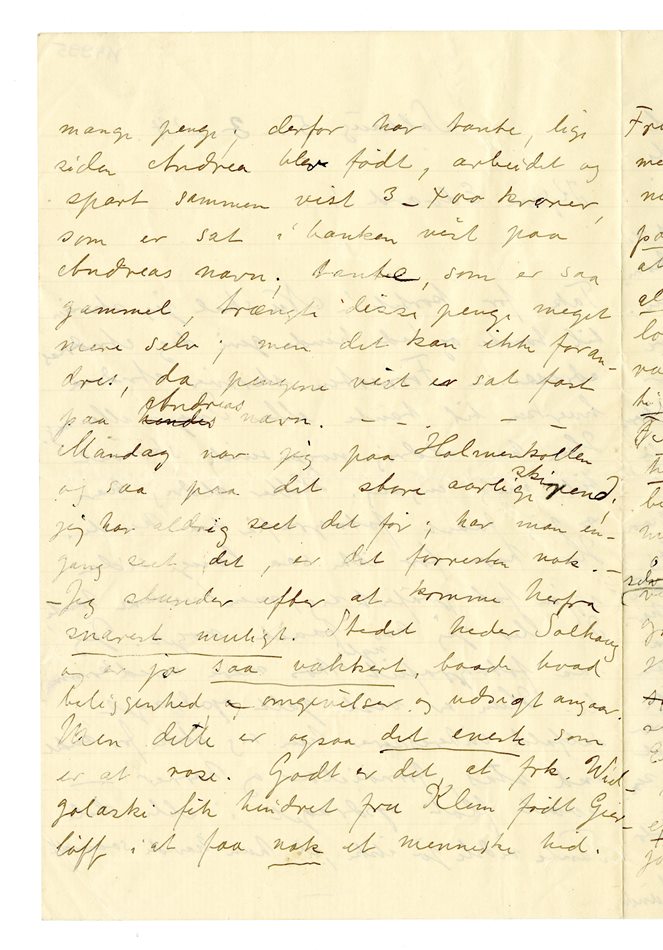 mange penge; derfor har tante, lige
siden Andrea blev født, arbeidet og
spart sammen vist 3–400 kroner,
som er sat i banken vist paa
Andreas navn; tante, som er saa
gammel, trængte disse penge meget
mere selv; men det kan ikke foran-
dres, da pengene vist er sat fast
paa hendes Andreas navn. – – . – –
Mandag var jeg paa Holmenkollen
og saa paa det store aarlige skirend;
jeg har aldrig seet det før; har man en-
gang seet det, er det forresten nok. –
– Jeg stunder efter at komme herfra
snarest muligt. Stedet heder Solhaug
og er jo saa vakkert, baade hvad
beliggenhed, omgivelser og udsigt angaar.
Men dette er ogsaa det eneste som
er at rose. Godt er det, at frk. Wid-
golaski fik hindret fru Klem født Gier-
løff i at faa nok et menneske hid.